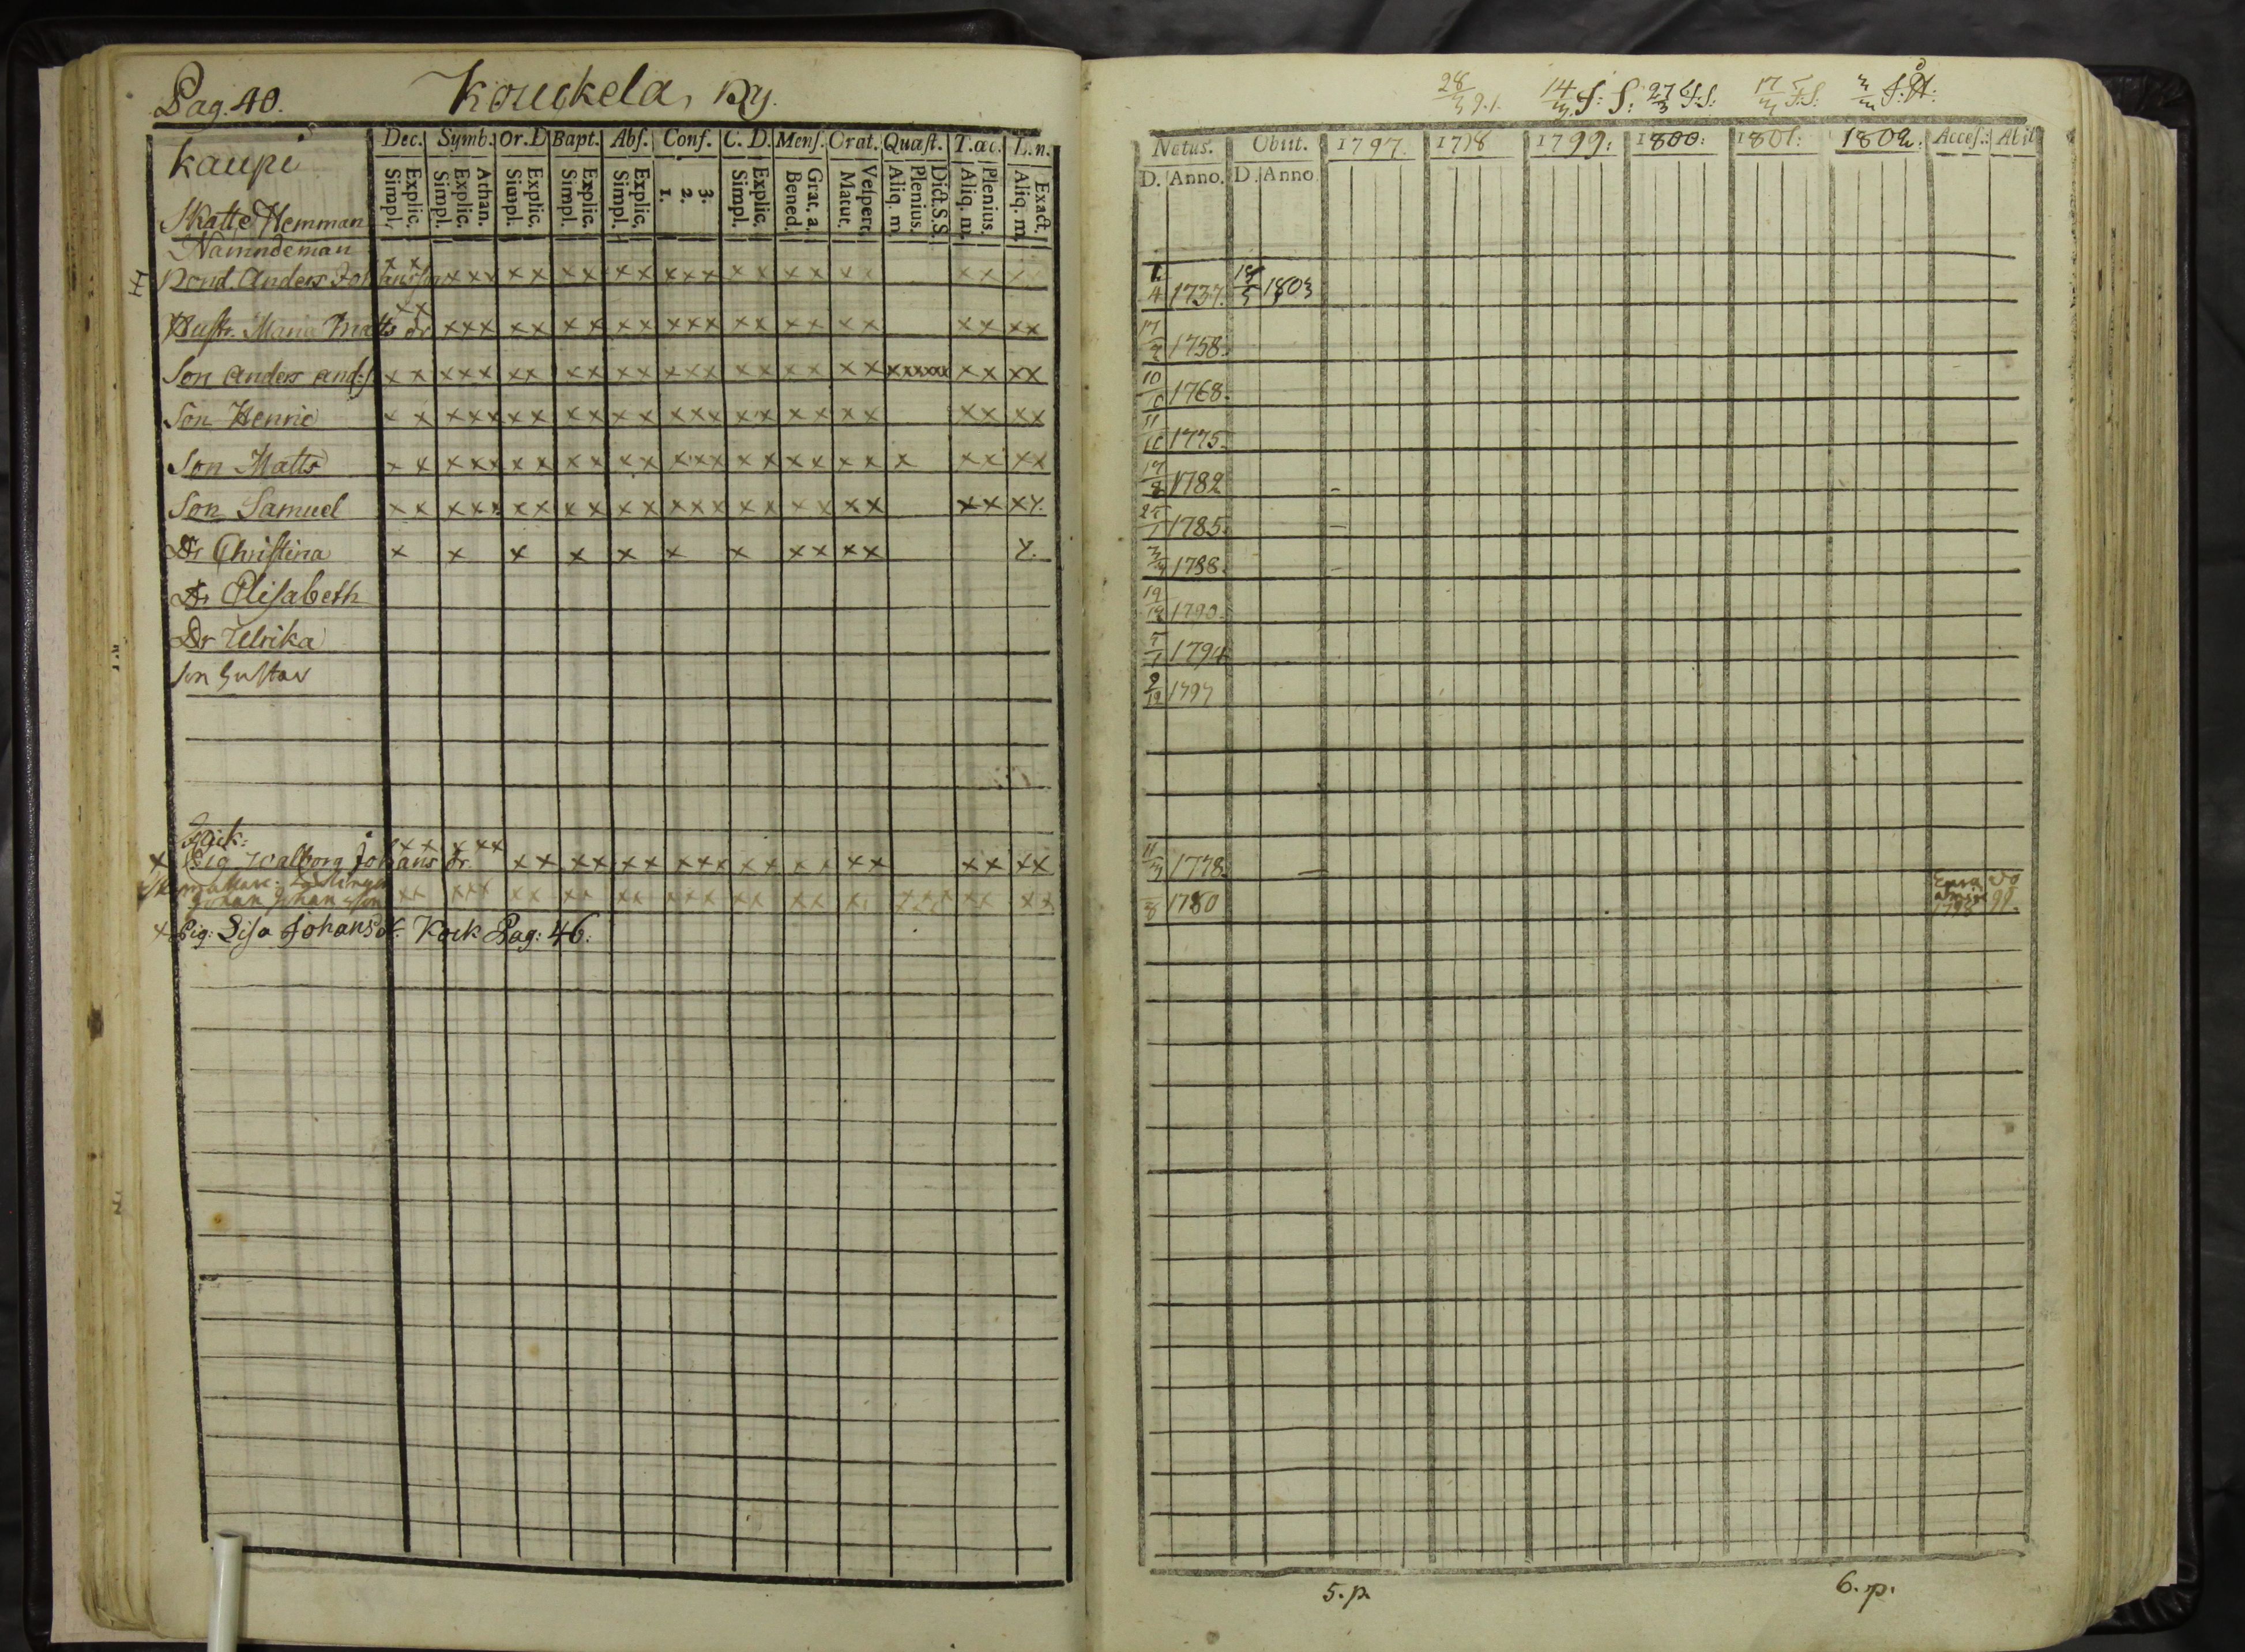 Pag. 40. Kouckela, By.
Kaupi
Skatte Hemman
Dec. Symb. Or. D Bapt. Abſ. Conf. C. D. Menſ. Orat. Quæſt. T. œc. L. n.
Explic. Simpl. Athan. Explic. Simpl. Explic. Simpl. Explic. Simpl. Explic. Simpl. 3. 2. 1. Explic. Simpl. Grat. a. Bened. Veſpert. Matut. Dict. S. S. Plenius. Aliq. m. Plenius. Aliq. m. Exact. Aliq. m.
Nämndeman
Bond. Anders Johansson
Hustr. Maria Matts dr
Son Anders And:s
Son Henric
Son Matts
Son Samuel
Dr Christina
Dr Elisabeth
Dr Ulrika
Son Gustav
Pig Walborg Johans dr.
Johan Johansson
Pig: Lisa Johansdr. Kock Pag: 46.
14/3 S. S. 27/3 17/3
Natus. Obiit. 1797. 1798 1799: 1800: 1801: 1802. Acceſ.: Abit
D. Anno. D. Anno
1/4 1737. 1803
17/2 1758.
10 1768.
11/10 1775.
17 1782
25/1 1785.
1788.
19/12 1790.
5/1 1794
9/12 1797
11/3 1778.
8 1780
1798 99.
5. p. 6. p.